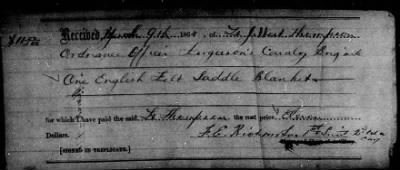 $11 50/100 Received, March 9th 1864 of Lt. J. West Thompson
Ordnance Officer Ferguson's Cavalry Brigade
One English Felt Saddle Blanket
for which I have paid the said Lt Thompson the cost price, Eleven
Dollars.
F. C. Richmond 1st Lieut 2d
Cav
[SIGNED IN TRIPLICATE.]